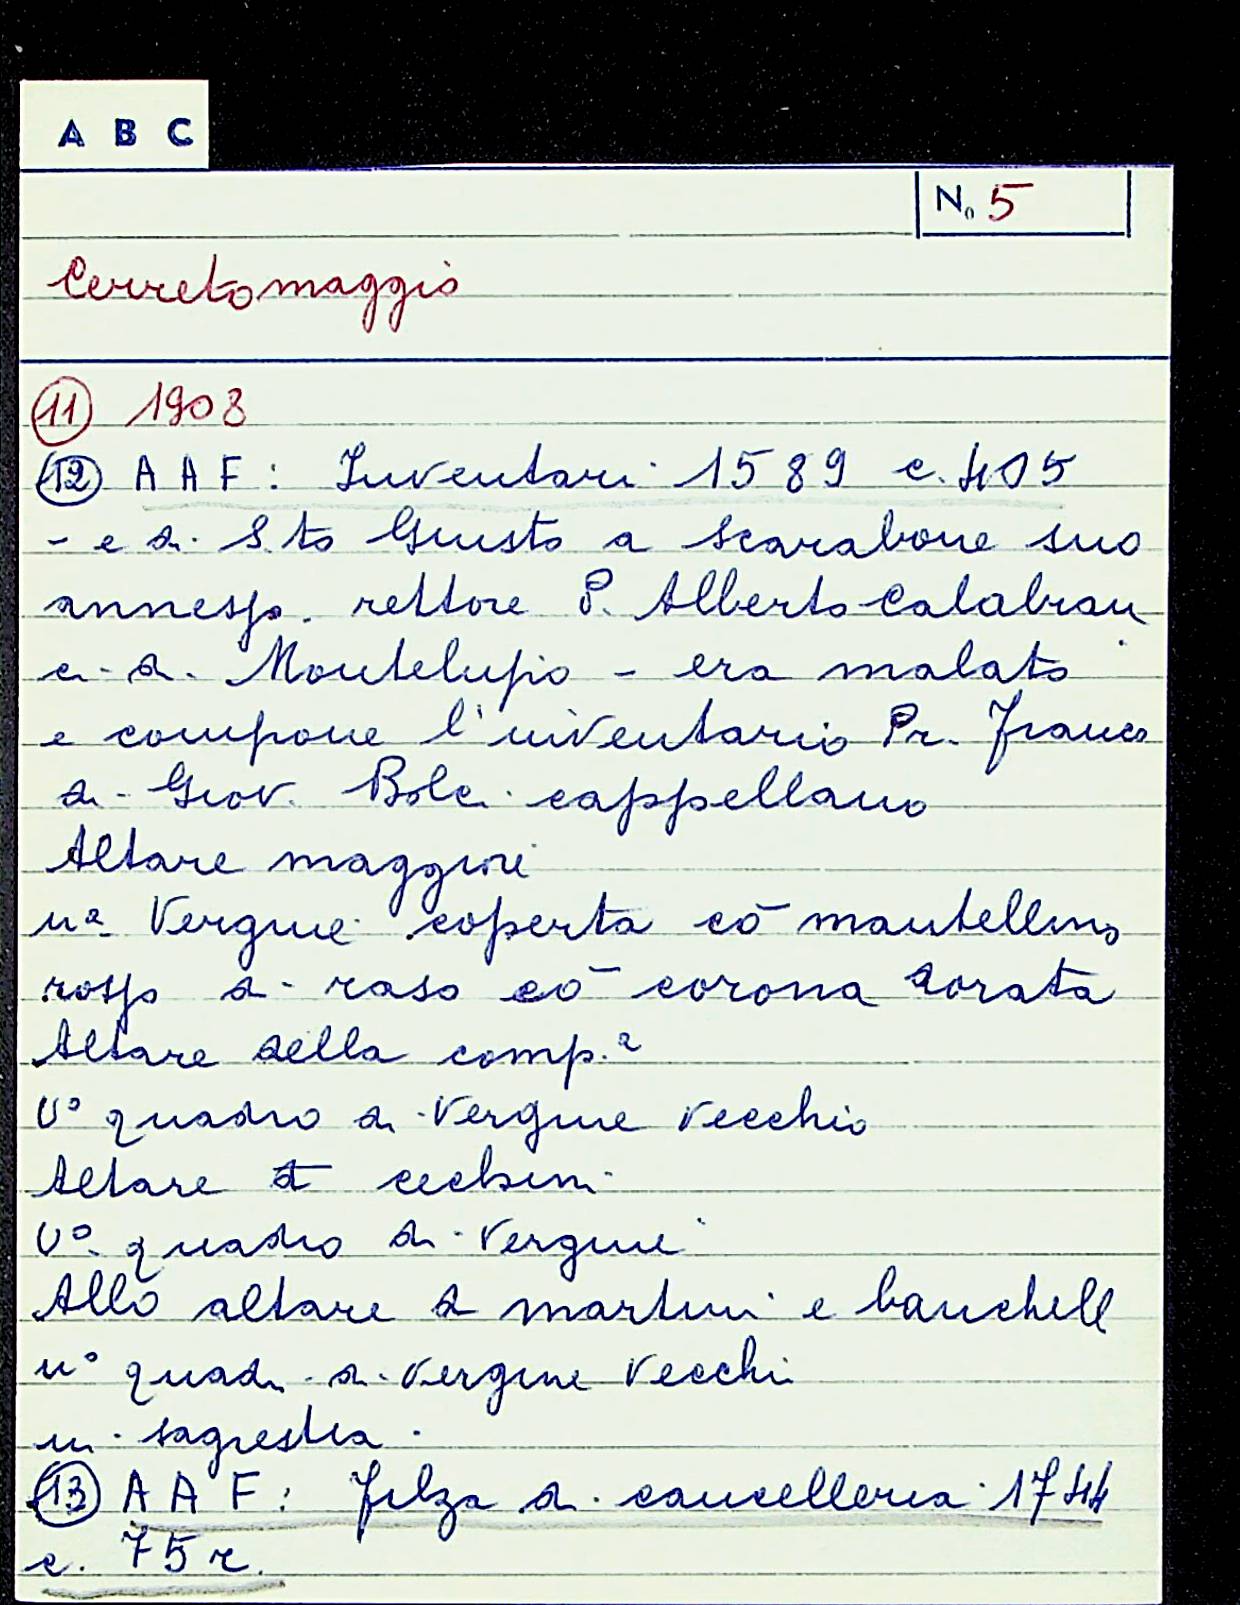 A B C
No 5
Cerretomaggio
11 1908
12 A A F: Inventari 1589 c. 405
- e di S.to Giusto a Scarabone suo
annesso. rettore P. Alberto Calabran
ci di Montelupo - era malato
e compone l'inventario Pr. Franco
di Giov. Bolc. cappellano
Altare maggiore
na Vergine coperta cō mantellino
rosso di raso cō corona dorata
Altare della comp.a
Uo quadro di Vergine vecchio
Altare d
Uo quadro di Vergine
Allo altare d martini e banchell
no quadri di Vergine vecchi
in sagrestia.
13 A A F: Filza di cancelleria 1744
c. 75 r.